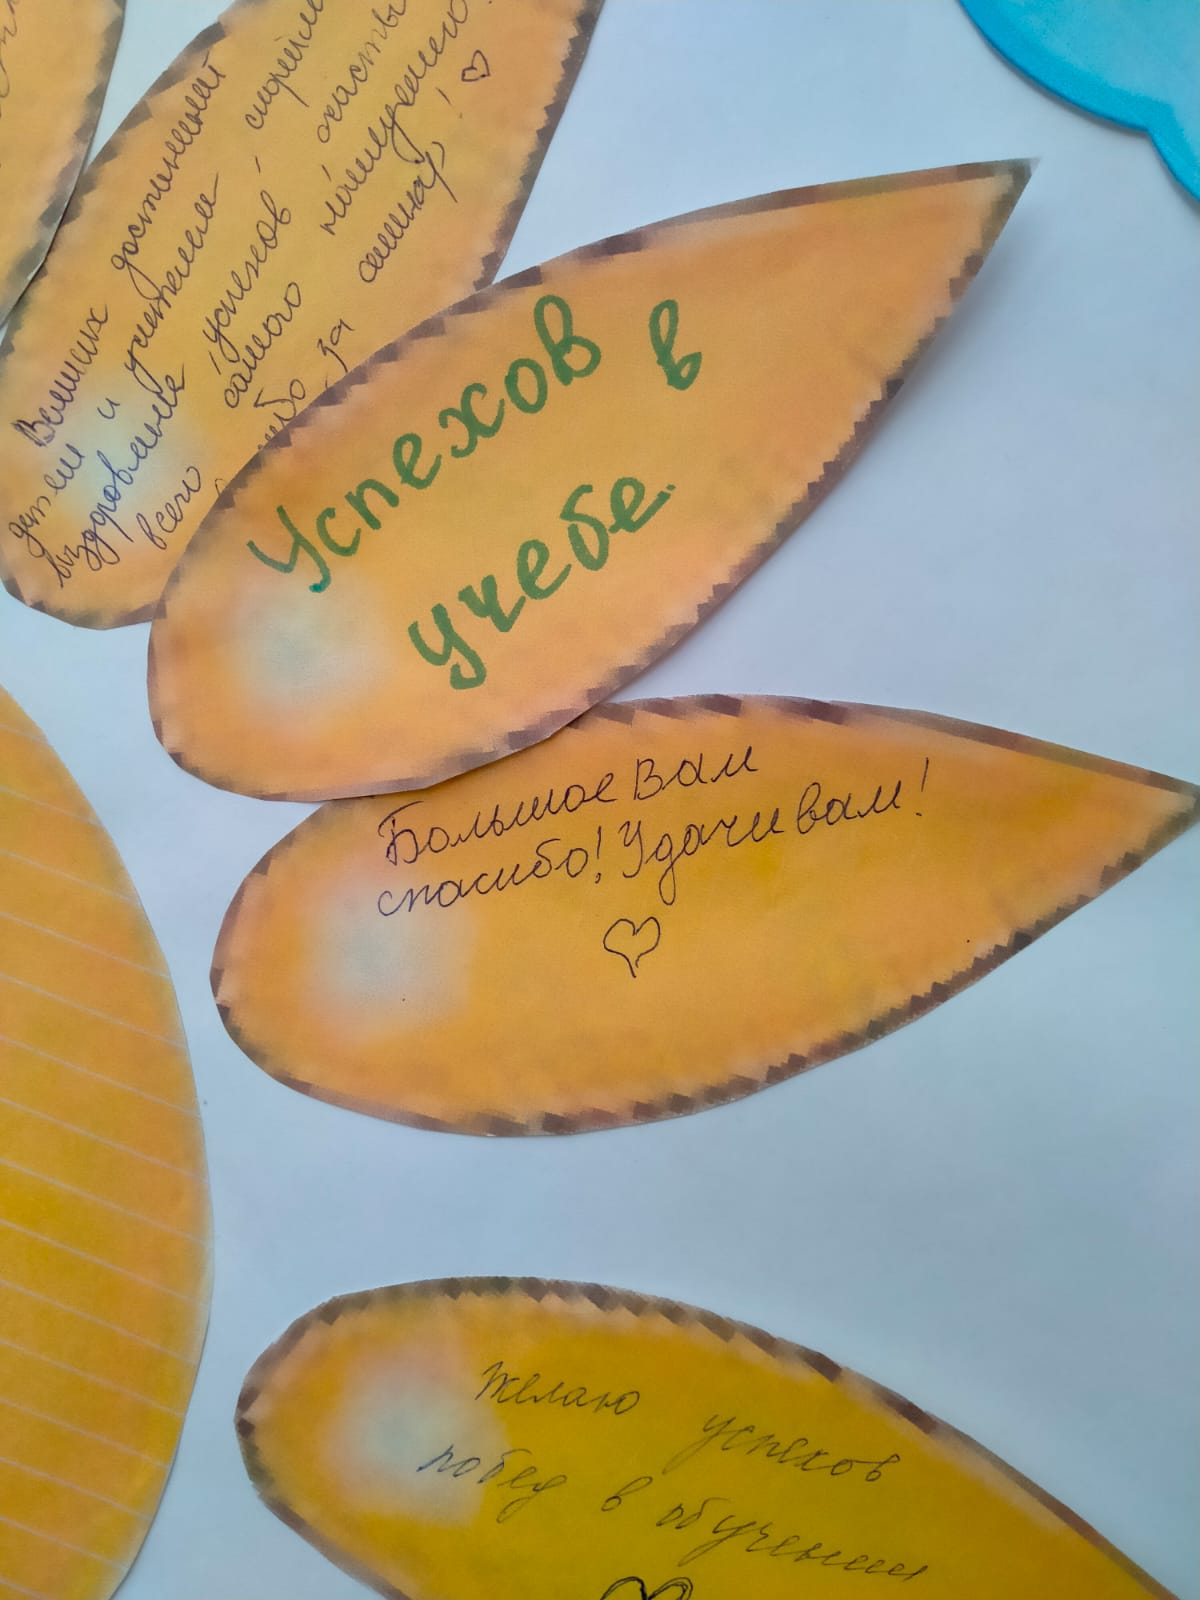 Великих достижений
детям и учителям -
выздоровления, успехов,
всего самого наилучшего!
за семинар! ♡
Успехов в
учебе.
Большое Вам
спасибо! Удачи вам!
♡
Желаю успехов
побед в обучении
♡